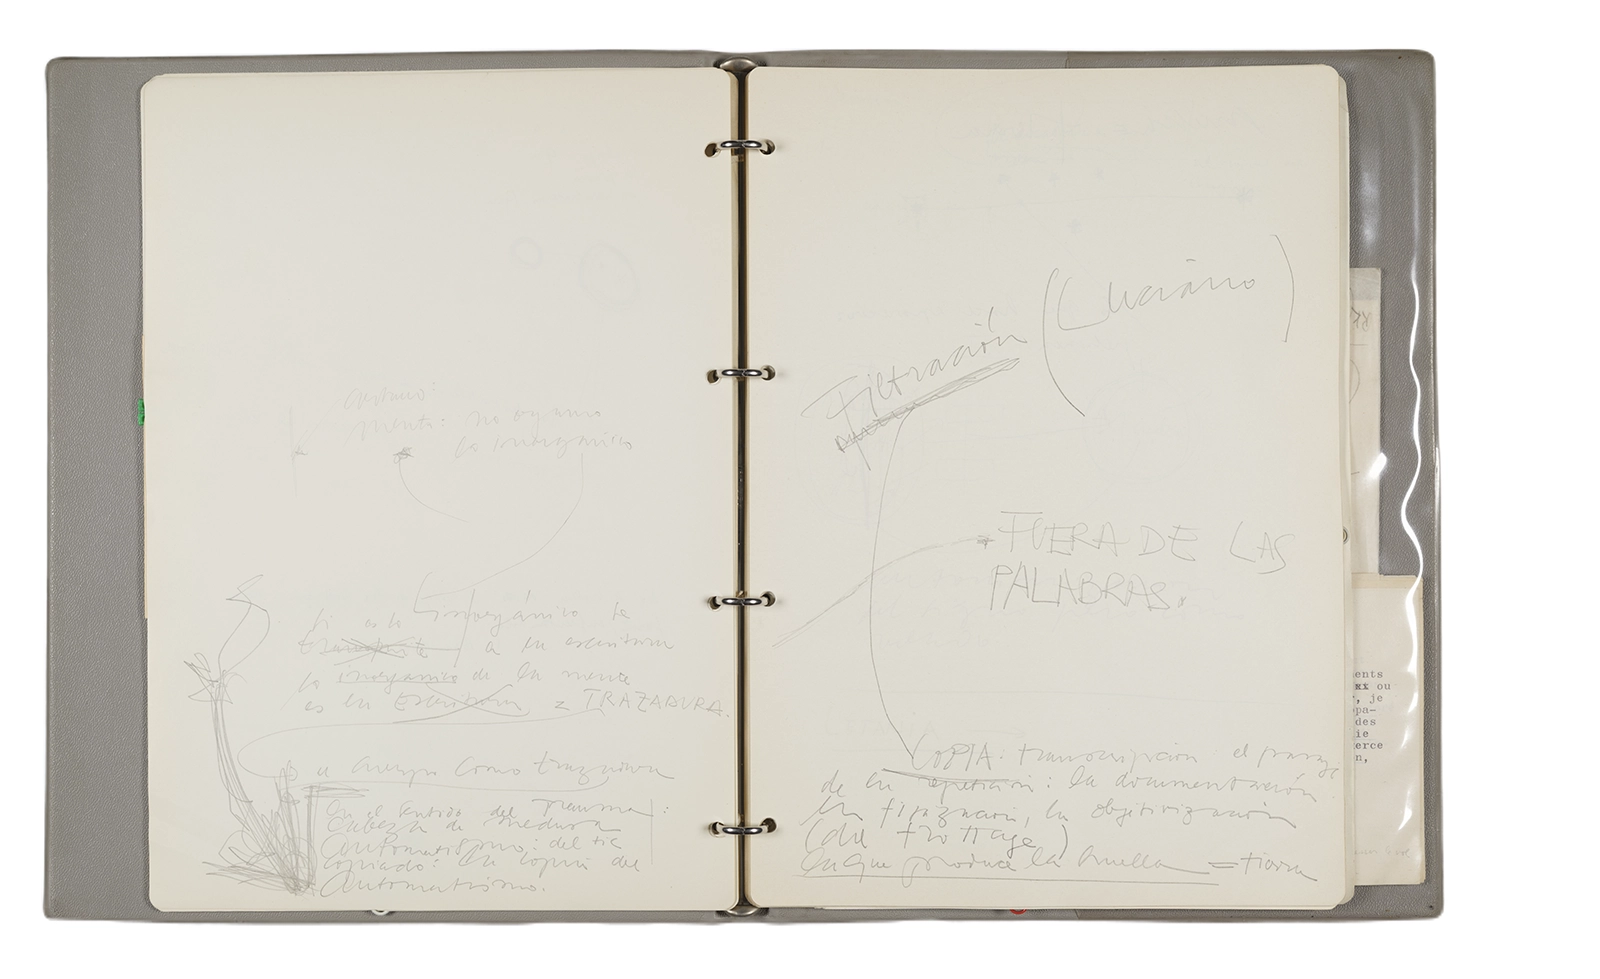 mente: no organico
lo inorganico
Si es lo inorgánico te
a la escritura
lo inorganico de la mente
es la Escritura = TRAZADURA.
el cuerpo como trazadura
en el sentido del trauma:
Cabeza de medusa
automatismo: del tic
copiado: la copia del
automatismo.
Filtración (Luciano)
FUERA DE LAS
PALABRAS.
COPIA: transcripción el pasaje
de la repetición: la documentación
la fijación, la objetivización
(del frottage)
la que produce la huella = tierra
ments
RX ou
, je
pa-
des
ie
erce
n,